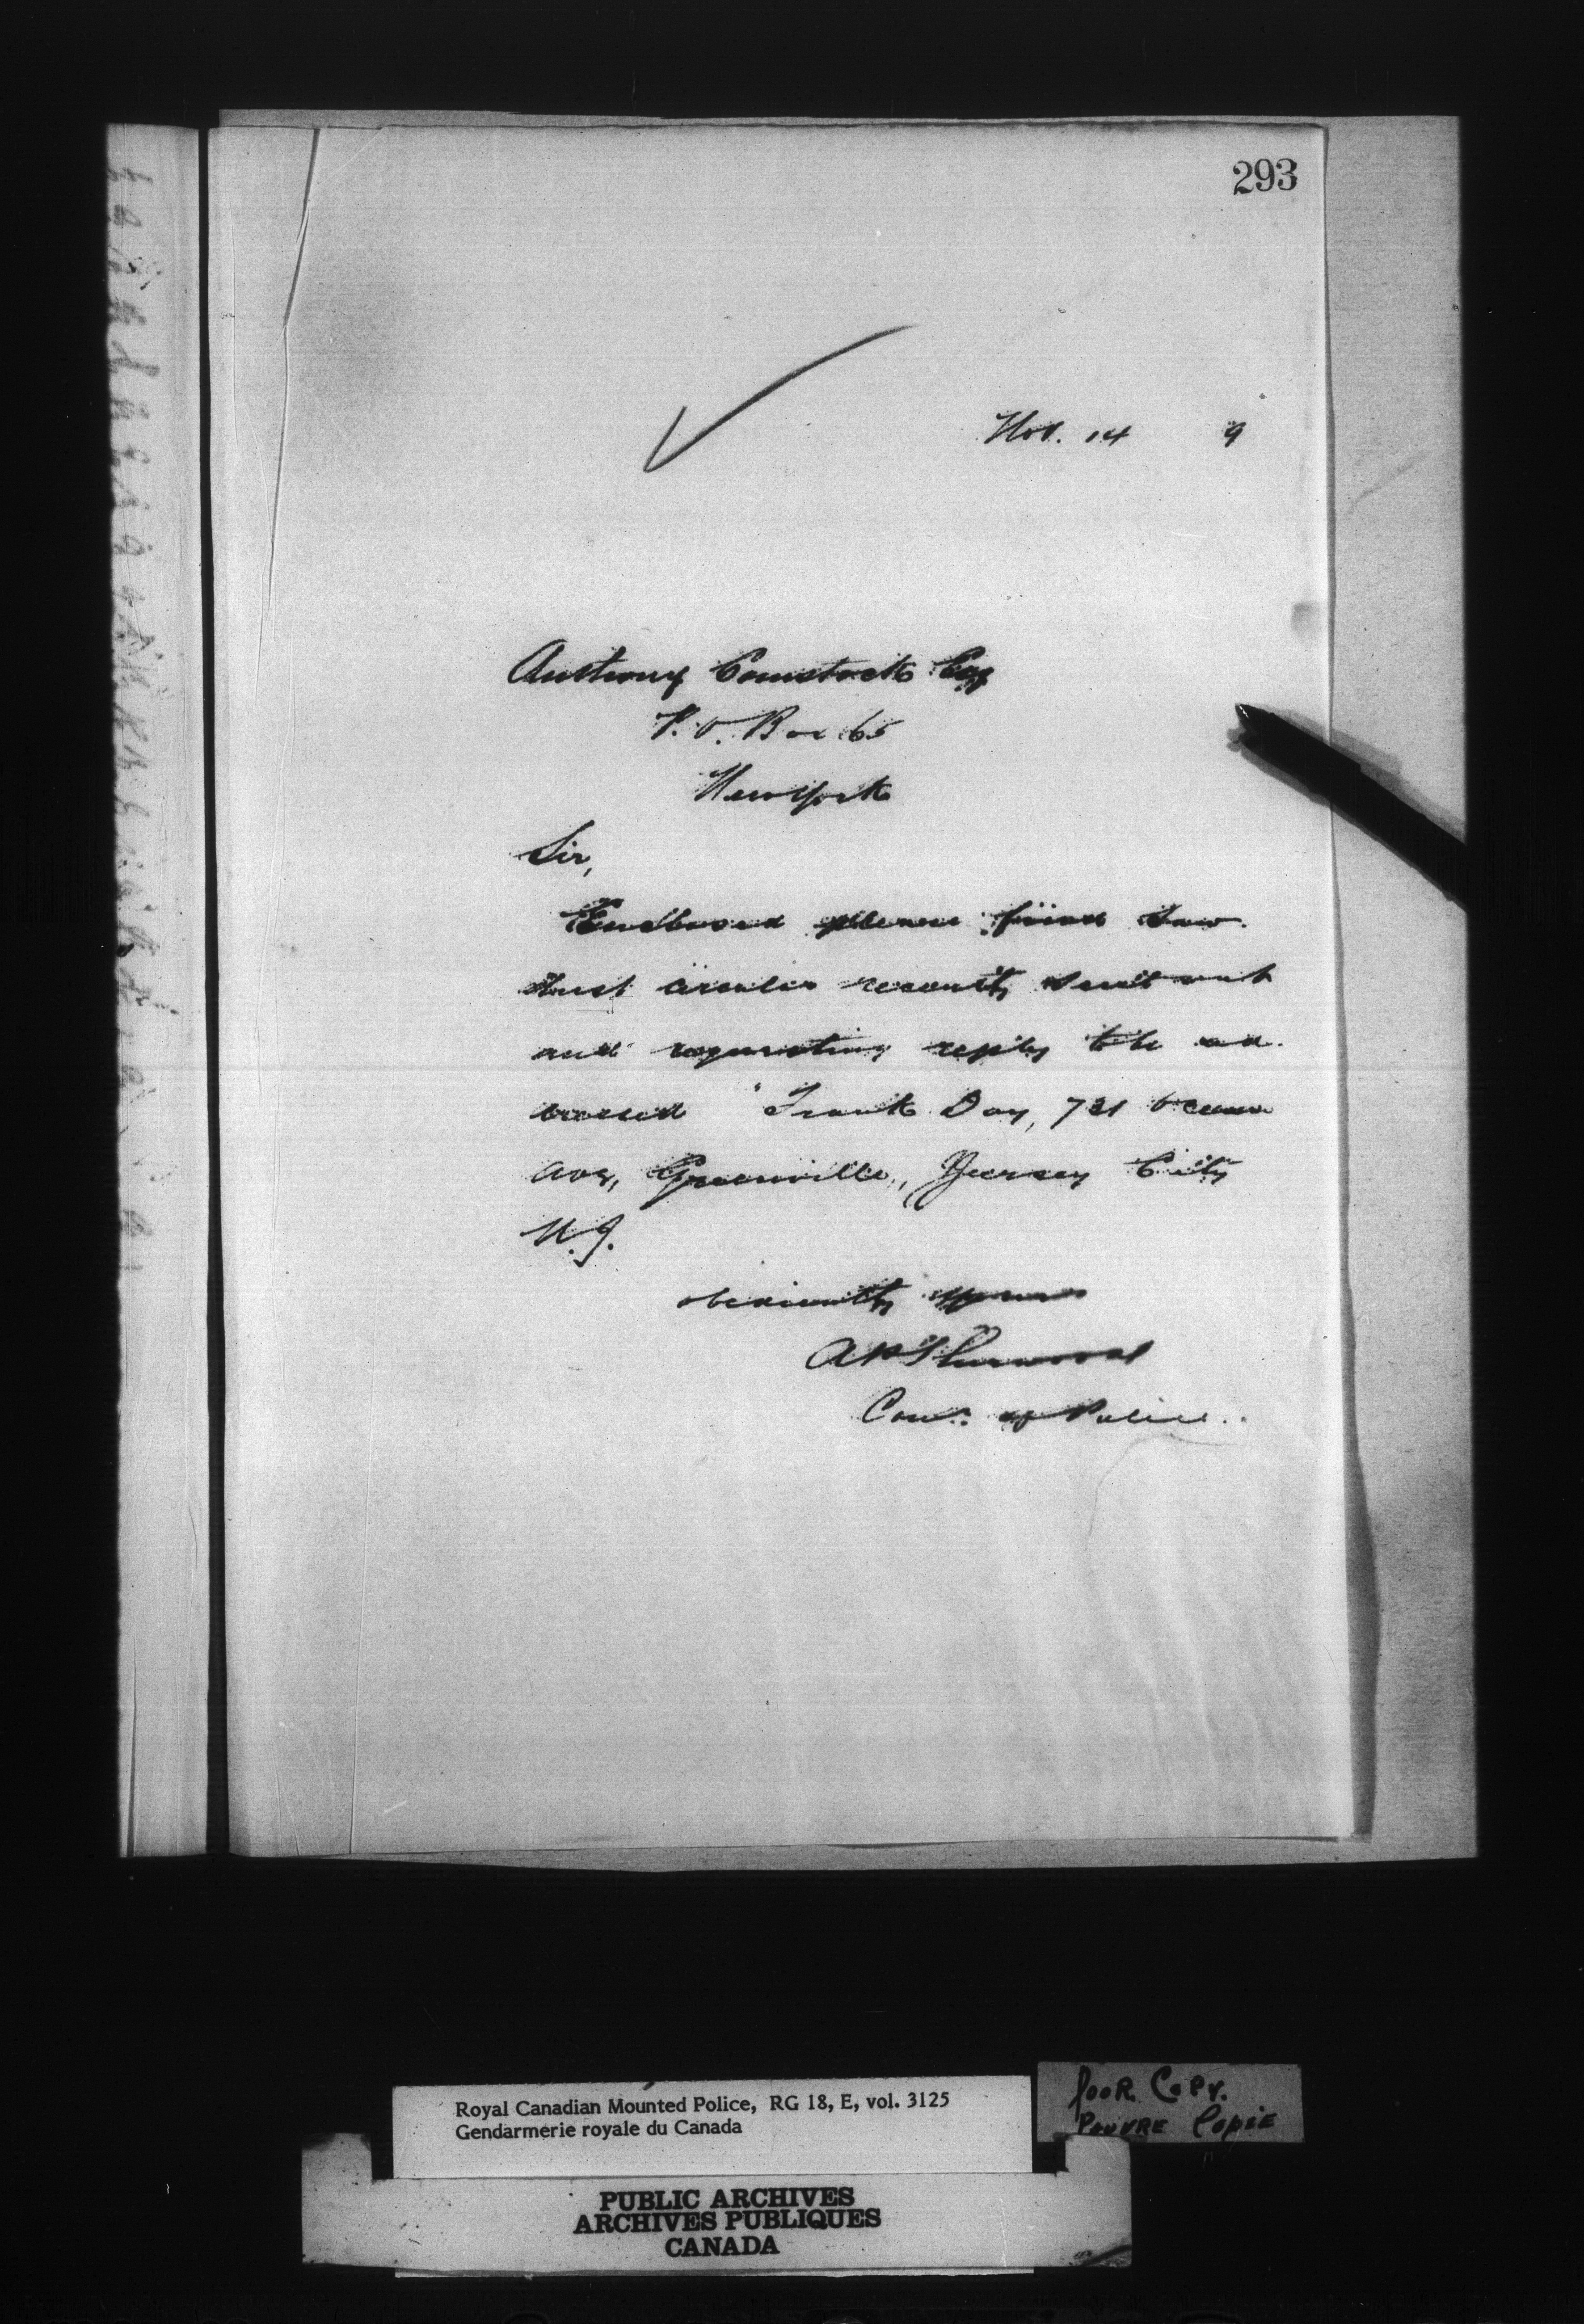 293
Nov. 14 9
Anthony Comstock Esq
P.O. Box 65
New York
Sir,
Enclosed please find saw-
dust circular recently sent out
and requesting reply to be ad-
dressed "Frank Day, 721 Ocean
Ave, Greenville, Jersey City
N.J.
obediently yours
A P Sherwood
Com. of Police.
Royal Canadian Mounted Police, RG 18, E, vol. 3125
Gendarmerie royale du Canada
POOR COPY.
PAUVRE COPIE
PUBLIC ARCHIVES
ARCHIVES PUBLIQUES
CANADA